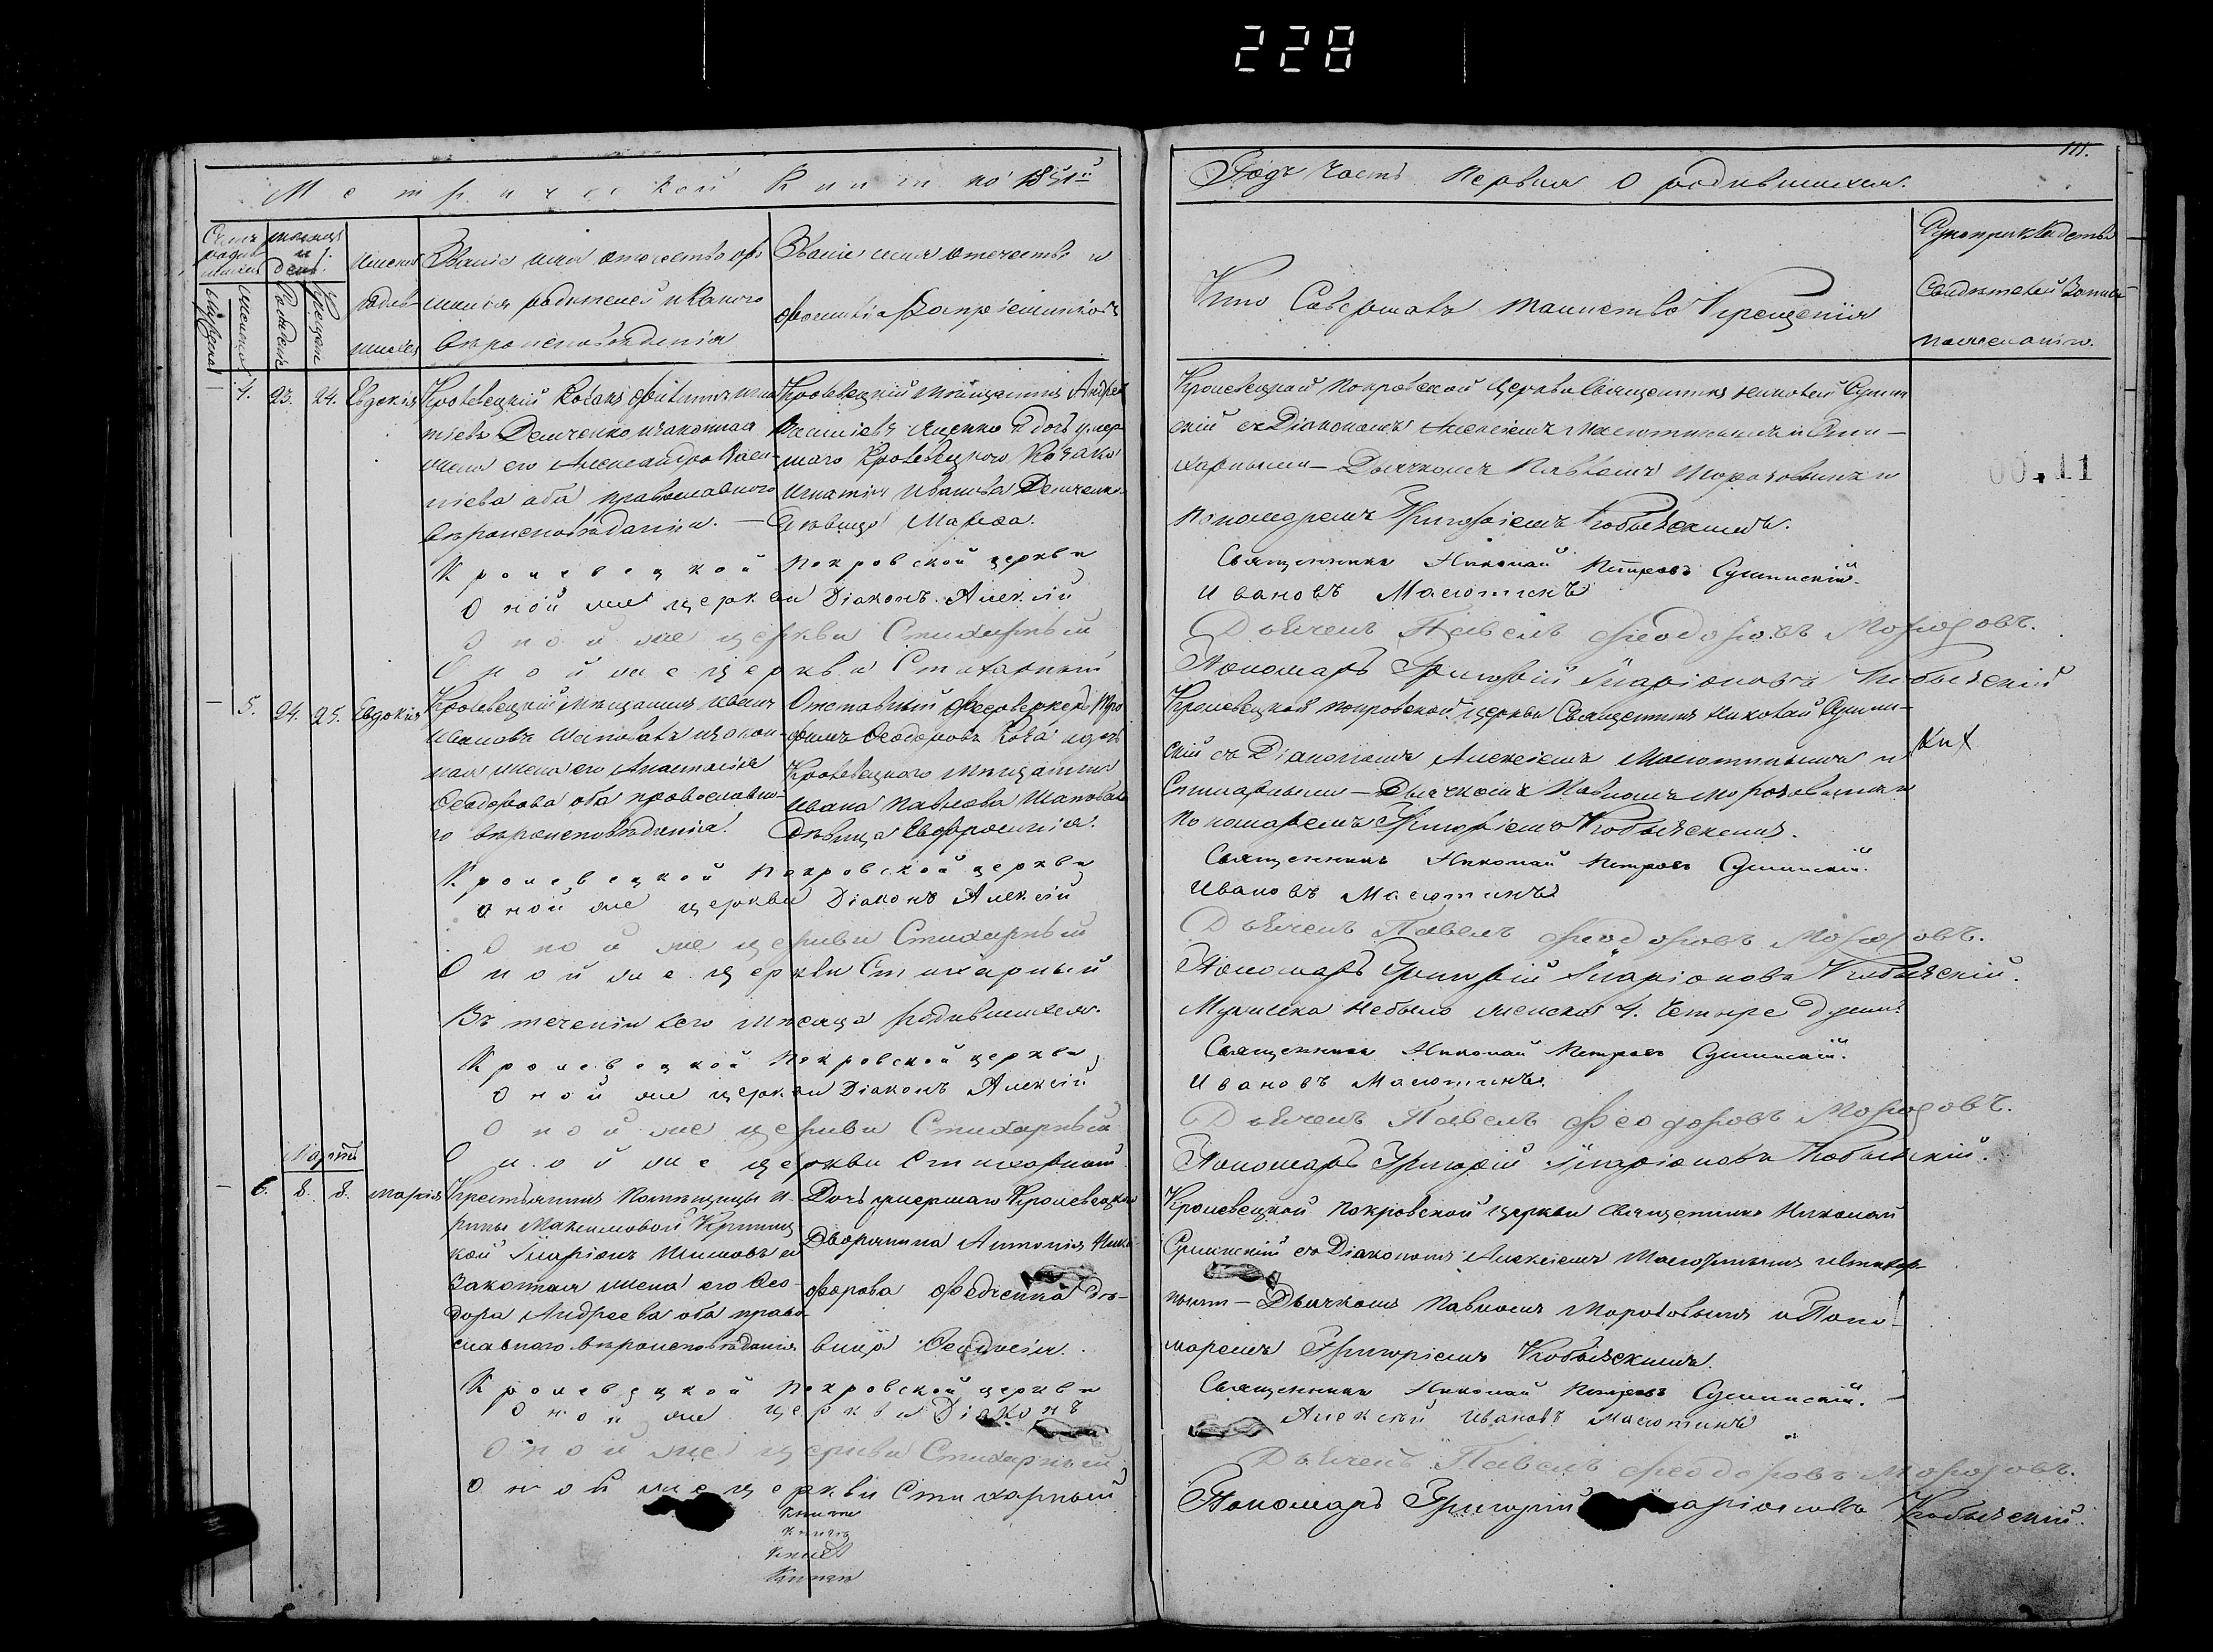 228
111.
Метрической Книги на 1851й
Годъ Часть Первая О родившихся.
Счетъ родившихся
месяцъ и день.
Мужеска
Женска
Рожденія
Крещенія
Имена родившихся
Званіе имя отечество и фамилія родителей и какого
вѣроисповѣданія
Званіе имя отечество и
фамилія Воспріемниковъ
Кто Совершалъ таинство Крещенія
Рукоприкладство
Свидѣтелей Записи
по желанію.
4. 23. 24. Евдокія
Кролевецкій Козакъ Филипъ Игна
тіевъ Демченко и законная
жена его Александра Васи-
ліева оба православного
вѣроисповѣданія. —
Кролевецкій мѣщанинъ Андрей
Василіевъ Яценко и дочь умер-
шаго Кролевецкого Козака
Игнатія Иванова Демченка
дѣвица Марѳа.
Кролевецкой Покровской Церкви Священникъ Николай Сушин
скій съ Діакономъ Алексіемъ Масютинымъ и Сти-
харнымъ — Дьячкомъ Павломъ Морозовымъ и
Пономаремъ Григоріемъ Кобыжскимъ.
Кролевецкой Покровской церкви
Священникъ Николай Петровъ Сушинскій.
Оной же церкви Діаконъ Алексій
Ивановъ Масютинъ
Оной же церкви Стихарный
Дьячекъ Павелъ Феодоровъ Морозовъ.
Оной же церкви Стихарный
Пономарь Григорій Иларіоновъ Кобыжскій
5. 24. 25. Евдокія
Кролевецкій мѣщанинъ Иванъ
Ивановъ Шаповалъ и закон-
ная жена его Анастасія
Ѳеодорова оба православно-
го вѣроисповѣданія.
Отставный Фейерверкеръ
Ѳеодоровъ
Кролевецкого мѣщанина
Ивана Павлова Шаповала
дѣвица Евфросинія.
Кролевецкой Покровской Церкви Священникъ Николай Сушин-
скій съ Діакономъ Алексіемъ Масютинымъ и
Стихарнымъ — Дьячкомъ Павломъ Морозовымъ и
Пономаремъ Григоріемъ Кобыжскимъ.
Кролевецкой Покровской церкви
Священникъ Николай Петровъ Сушинскій.
Оной же церкви Діаконъ Алексій
Ивановъ Масютинъ
Оной же церкви Стихарный
Дьячекъ Павелъ Феодоровъ Морозовъ.
Оной же церкви Стихарный
Пономарь Григорій Иларіоновъ Кобыжскій.
Въ теченіи сего мѣсяца родившихся.
Мужеска небыло женска 4. Четыре души
Кролевецкой Покровской церкви
Священникъ Николай Петровъ Сушинскій.
Оной же церкви Діаконъ Алексій
Ивановъ Масютинъ.
Оной же церкви Стихарный
Дьячекъ Павелъ Феодоровъ Морозовъ.
Оной же церкви Стихарный
Пономарь Григорій Иларіоновъ Кобыжскій.
Мартъ
6. 8. 8. Марія
Крестьянинъ Помѣщицы И-
рины Максимовой
кой Иларіонъ и
Законная жена его Ѳео-
дора Андреева оба право-
славного вѣроисповѣданія
Дочь умершаго Кролевецкаго
Дворянина Антонія Ники-
форова Федченка дѣ-
вица Ѳеодосія.
Кролевецкой Покровской Церкви Священникъ Николай
Сушинскій съ Діакономъ Алексіемъ Масютинымъ и Стихар-
нымъ — Дьячкомъ Павломъ Морозовымъ и Поно-
маремъ Григоріемъ Кобыжскимъ.
Кролевецкой Покровской церкви
Священникъ Николай Петровъ Сушинскій.
Оной же церкви Діаконъ
Алексій Ивановъ Масютинъ
Оной же церкви Стихарный
Дьячекъ Павелъ Феодоровъ Морозовъ.
Оной же церкви Стихарный
Пономарь Григорій Иларіоновъ Кобыжскій.
00.11